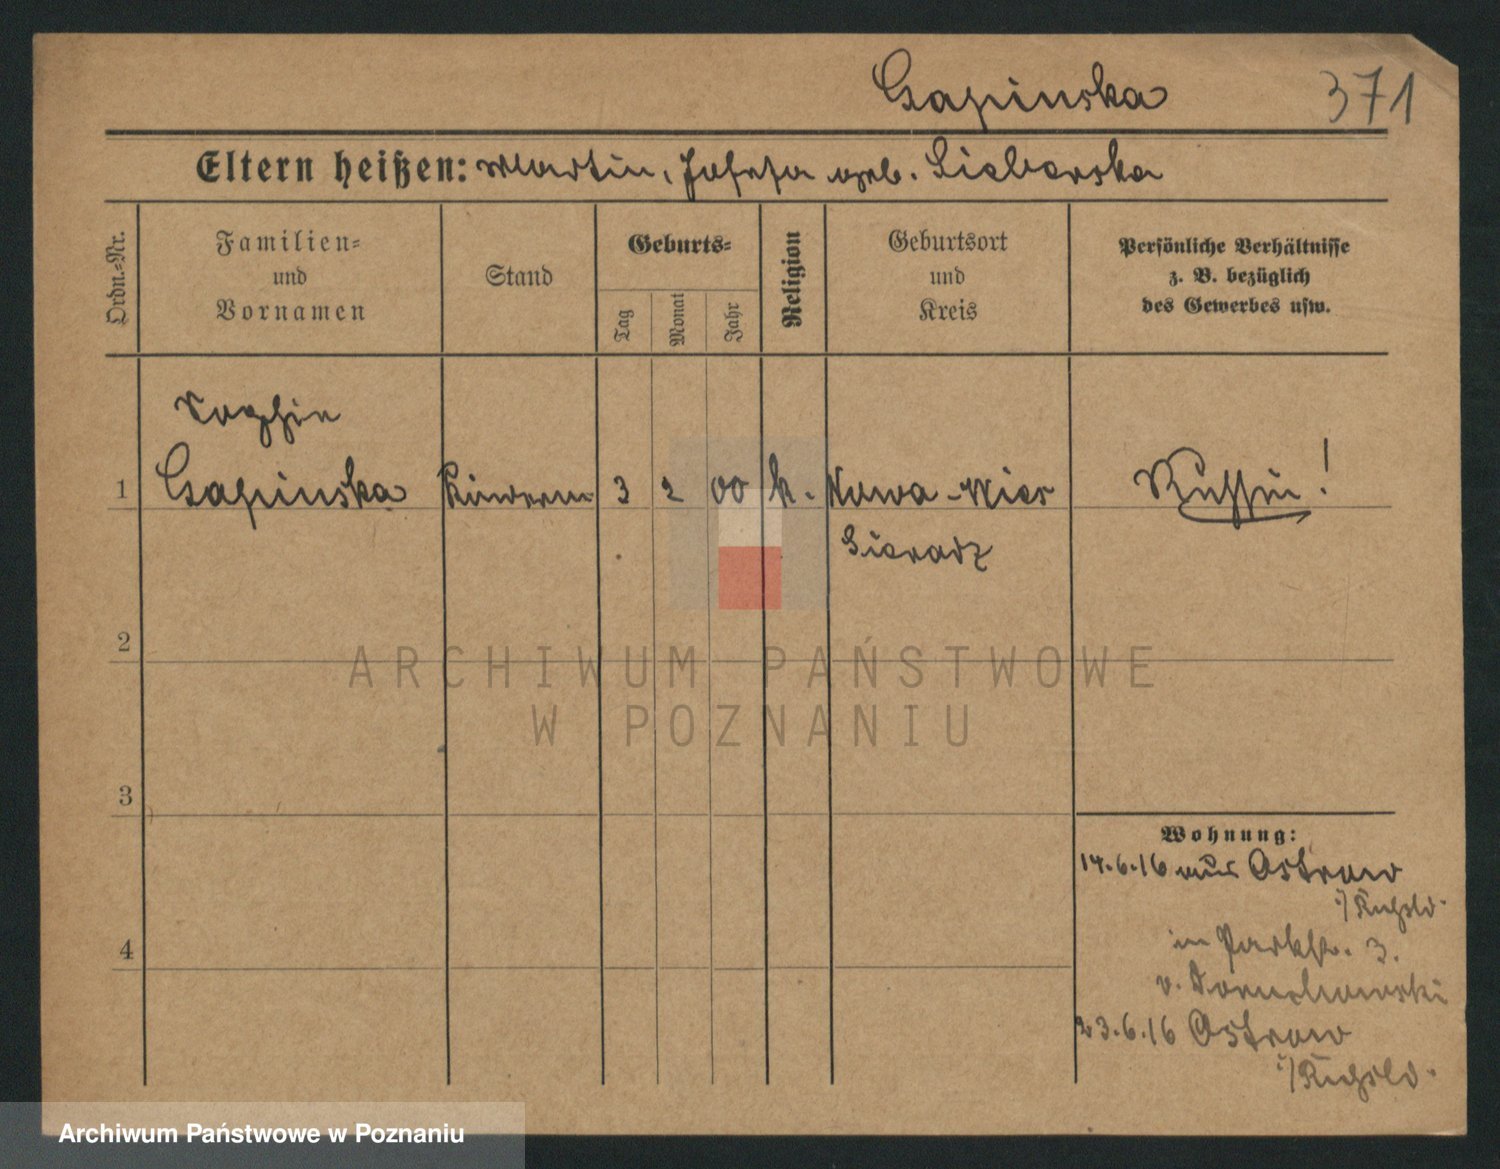 Czapinska 371
Eltern heißen: Martin, Josefa geb. Sieberska
Ordn.=Nr.
Familien=
und
Vornamen
Stand
Geburts=
Tag
Monat
Jahr
Religion
Geburtsort
und
Kreis
Persönliche Verhältnisse
z. B. bezüglich
des Gewerbes usw.
Sophie
1 Czapinska 3 2 00 k. Nowa-Wies Russin!
Sieradz
2
3
4
Wohnung:
14.6.16 aus Ostrowo
in Parkstr. 3.
v.
23.6.16 Ostrowo
ARCHIWUM PAŃSTWOWE
W POZNANIU
Archiwum Państwowe w Poznaniu